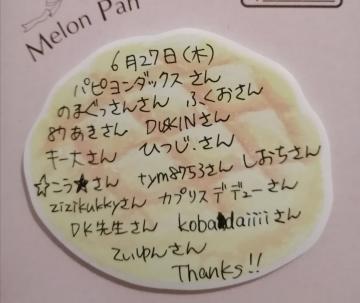 Melon Pan
6月27日(木)
パピヨンダックスさん
のまぐっさんさん ふくおさん
あきさん DUSKINさん
キー大さん ひつじ.さん
☆ニラ★さん tym8753さん しおちさん
zizikukkyさん カプリスデデューさん
DK先生さん kobadaiiiiさん
てぃゆんさん
Thanks!!